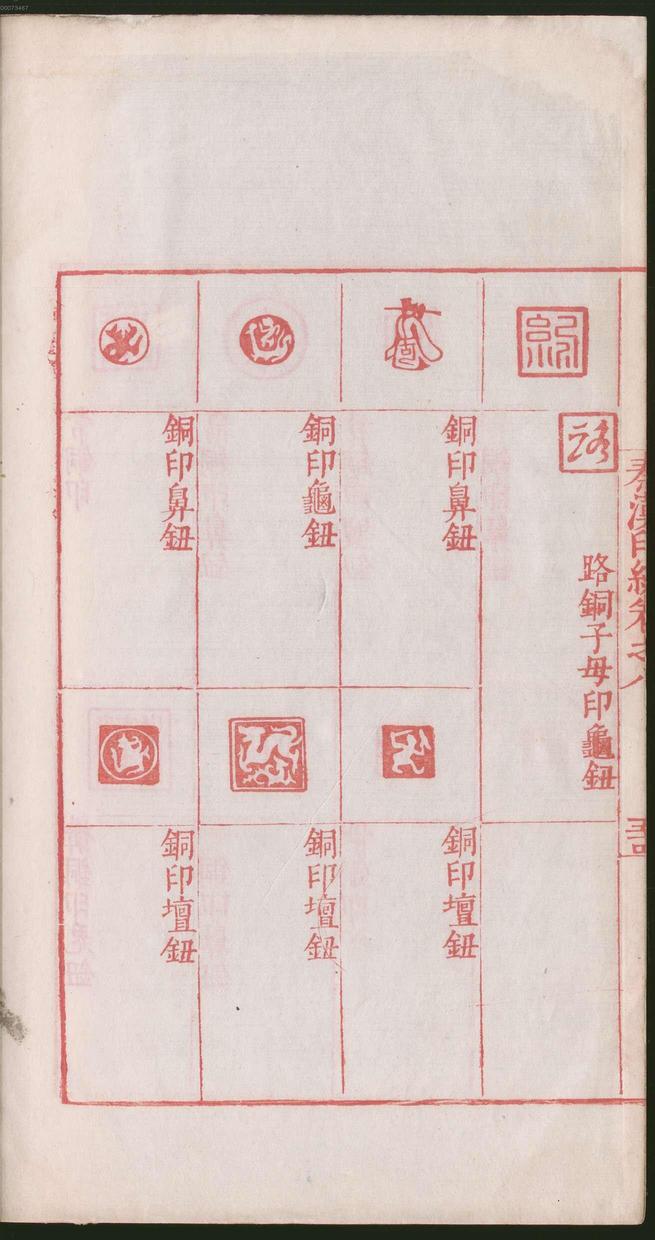 00073467
秦漢印統卷之八
路銅子母印龜鈕
銅印鼻鈕
銅印壇鈕
銅印龜鈕
銅印壇鈕
銅印鼻鈕
銅印壇鈕